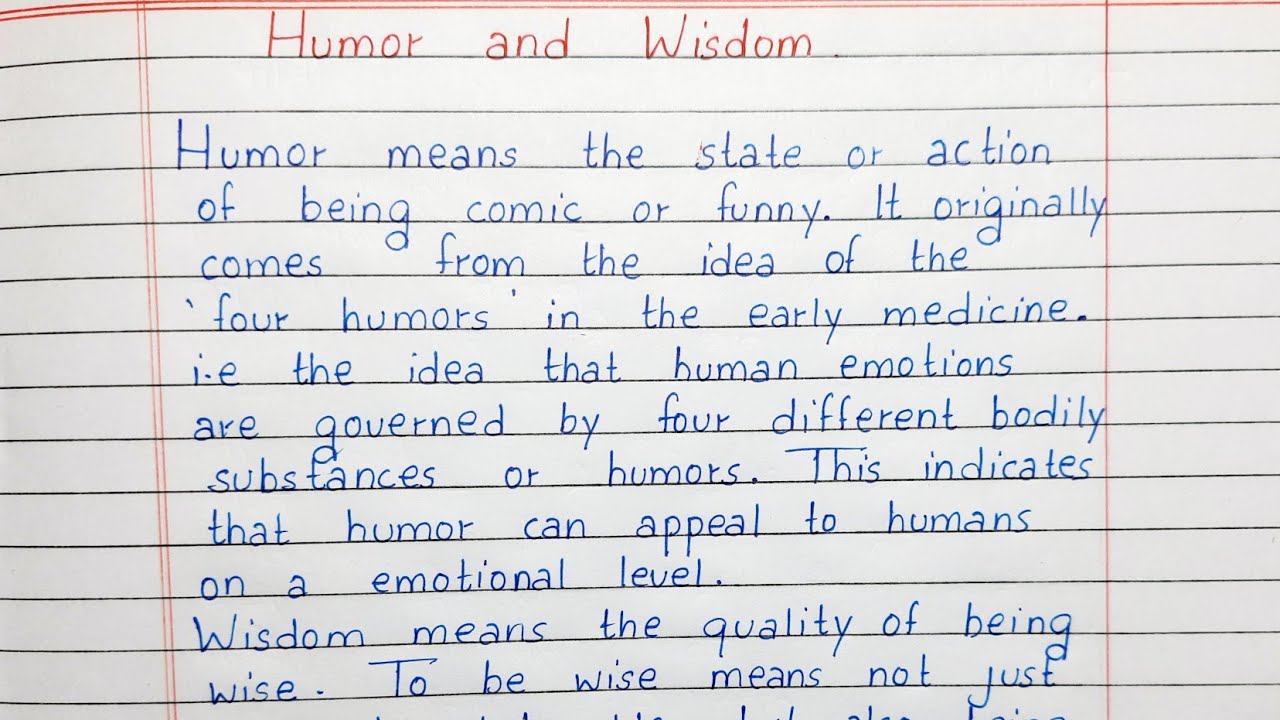 Humor and Wisdom.
Humor means the state or action
of being comic or funny. It originally
comes from the idea of the
'four humors' in the early medicine.
i.e the idea that human emotions
are governed by four different bodily
substances or humors. This indicates
that humor can appeal to humans
on a emotional level.
Wisdom means the quality of being
wise. To be wise means not just
also being